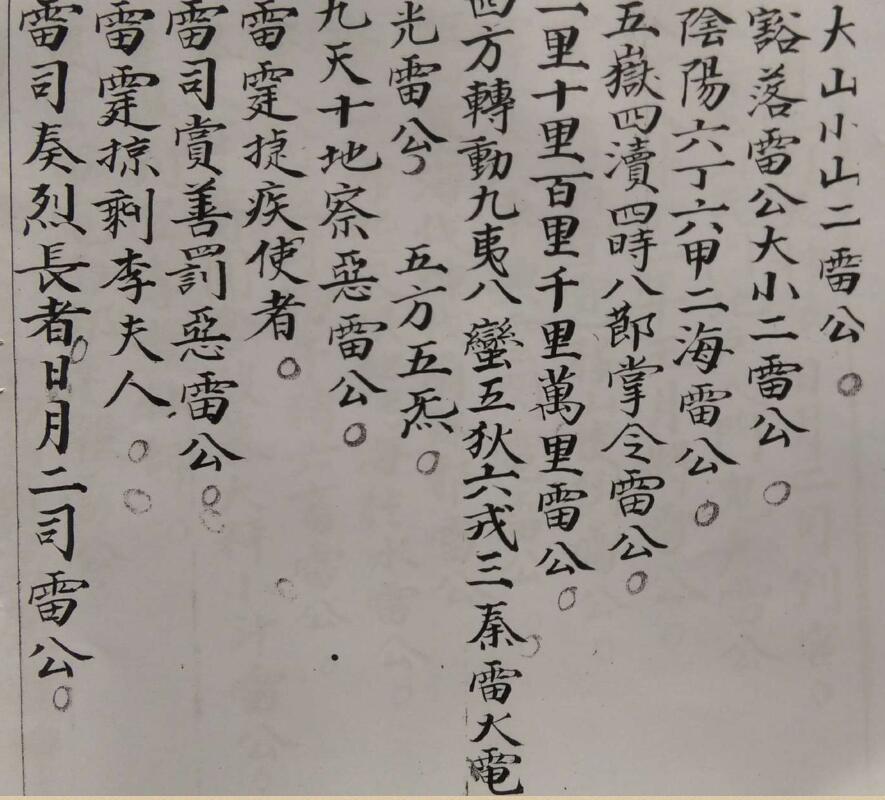 大山小山二雷公
豁落雷公大小二雷公
陰陽六丁六甲二海雷公
五嶽四瀆四時八節掌令雷公
一里十里百里千里萬里雷公
四方轉動九夷八蠻五狄六戎三秦雷火電
光雷公 五方五炁
九天十地察惡雷公
雷霆捷疾使者
雷司賞善罰惡雷公
雷霆掠剩李夫人
雷司奏烈長者日月二司雷公